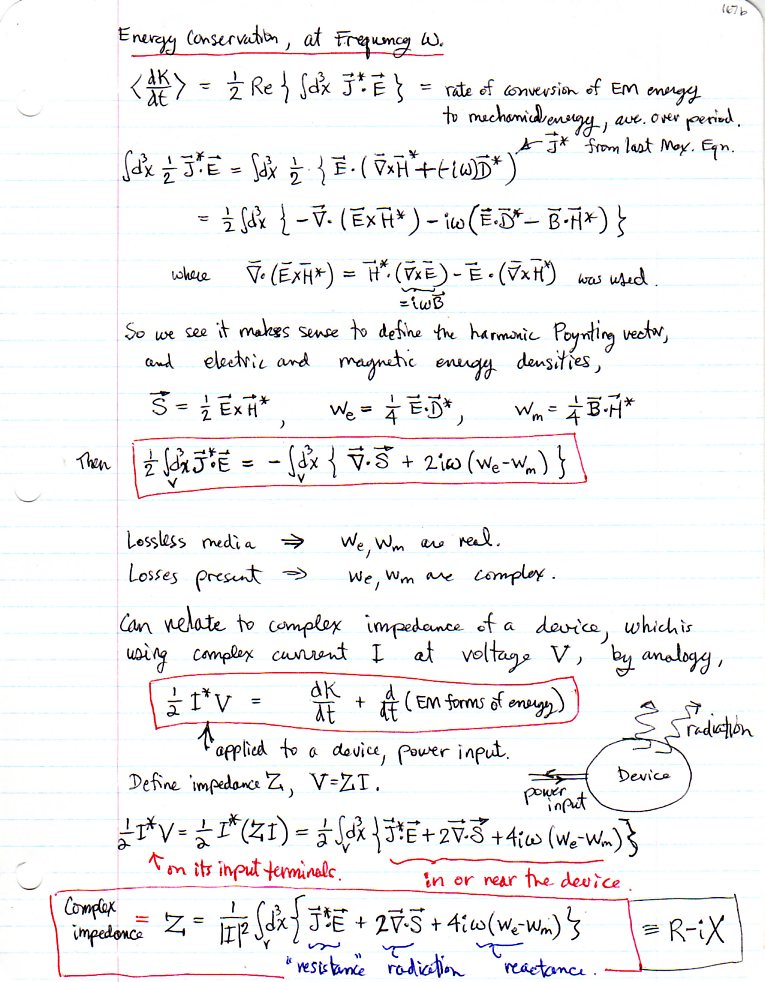 167b
Energy Conservation, at Frequency ω.
⟨dK/dt⟩ = 1/2 Re { ∫d³x J⃗*·E⃗ } = rate of conversion of EM energy
to mechanical energy, ave. over period.
∫d³x 1/2 J⃗*·E⃗ = ∫d³x 1/2 · { E⃗·(∇⃗×H⃗* + (-iω)D⃗*) J⃗* from last Max. Eqn.
= 1/2 ∫d³x { -∇⃗·(E⃗×H⃗*) - iω(E⃗·D⃗* - B⃗·H⃗*) }
where ∇⃗·(E⃗×H⃗*) = H⃗*·(∇⃗×E⃗) - E⃗·(∇⃗×H⃗*) was used.
=iωB⃗
So we see it makes sense to define the harmonic Poynting vector,
and electric and magnetic energy densities,
S⃗ = 1/2 E⃗×H⃗*, We = 1/4 E⃗·D⃗*, Wm = 1/4 B⃗·H⃗*
Then 1/2 ∫_V d³x J⃗*·E⃗ = -∫_V d³x { ∇⃗·S⃗ + 2iω(We-Wm) }
Lossless media ⇒ We, Wm are real.
Losses present ⇒ We, Wm are complex.
Can relate to complex impedance of a device, which is
using complex current I at voltage V, by analogy,
1/2 I*V = dK/dt + d/dt (EM forms of energy)
radiation
applied to a device, power input.
Device
Define impedance Z, V=ZI.
power input
1/2 I*V = 1/2 I*(ZI) = 1/2 ∫_V d³x { J⃗*·E⃗ + 2∇⃗·S⃗ + 4iω(We-Wm) }
on its input terminals. in or near the device.
Complex impedance = Z = 1/|I|² ∫_V d³x { J⃗*·E⃗ + 2∇⃗·S⃗ + 4iω(We-Wm) } ≡ R-iX
"resistance" radiation reactance.